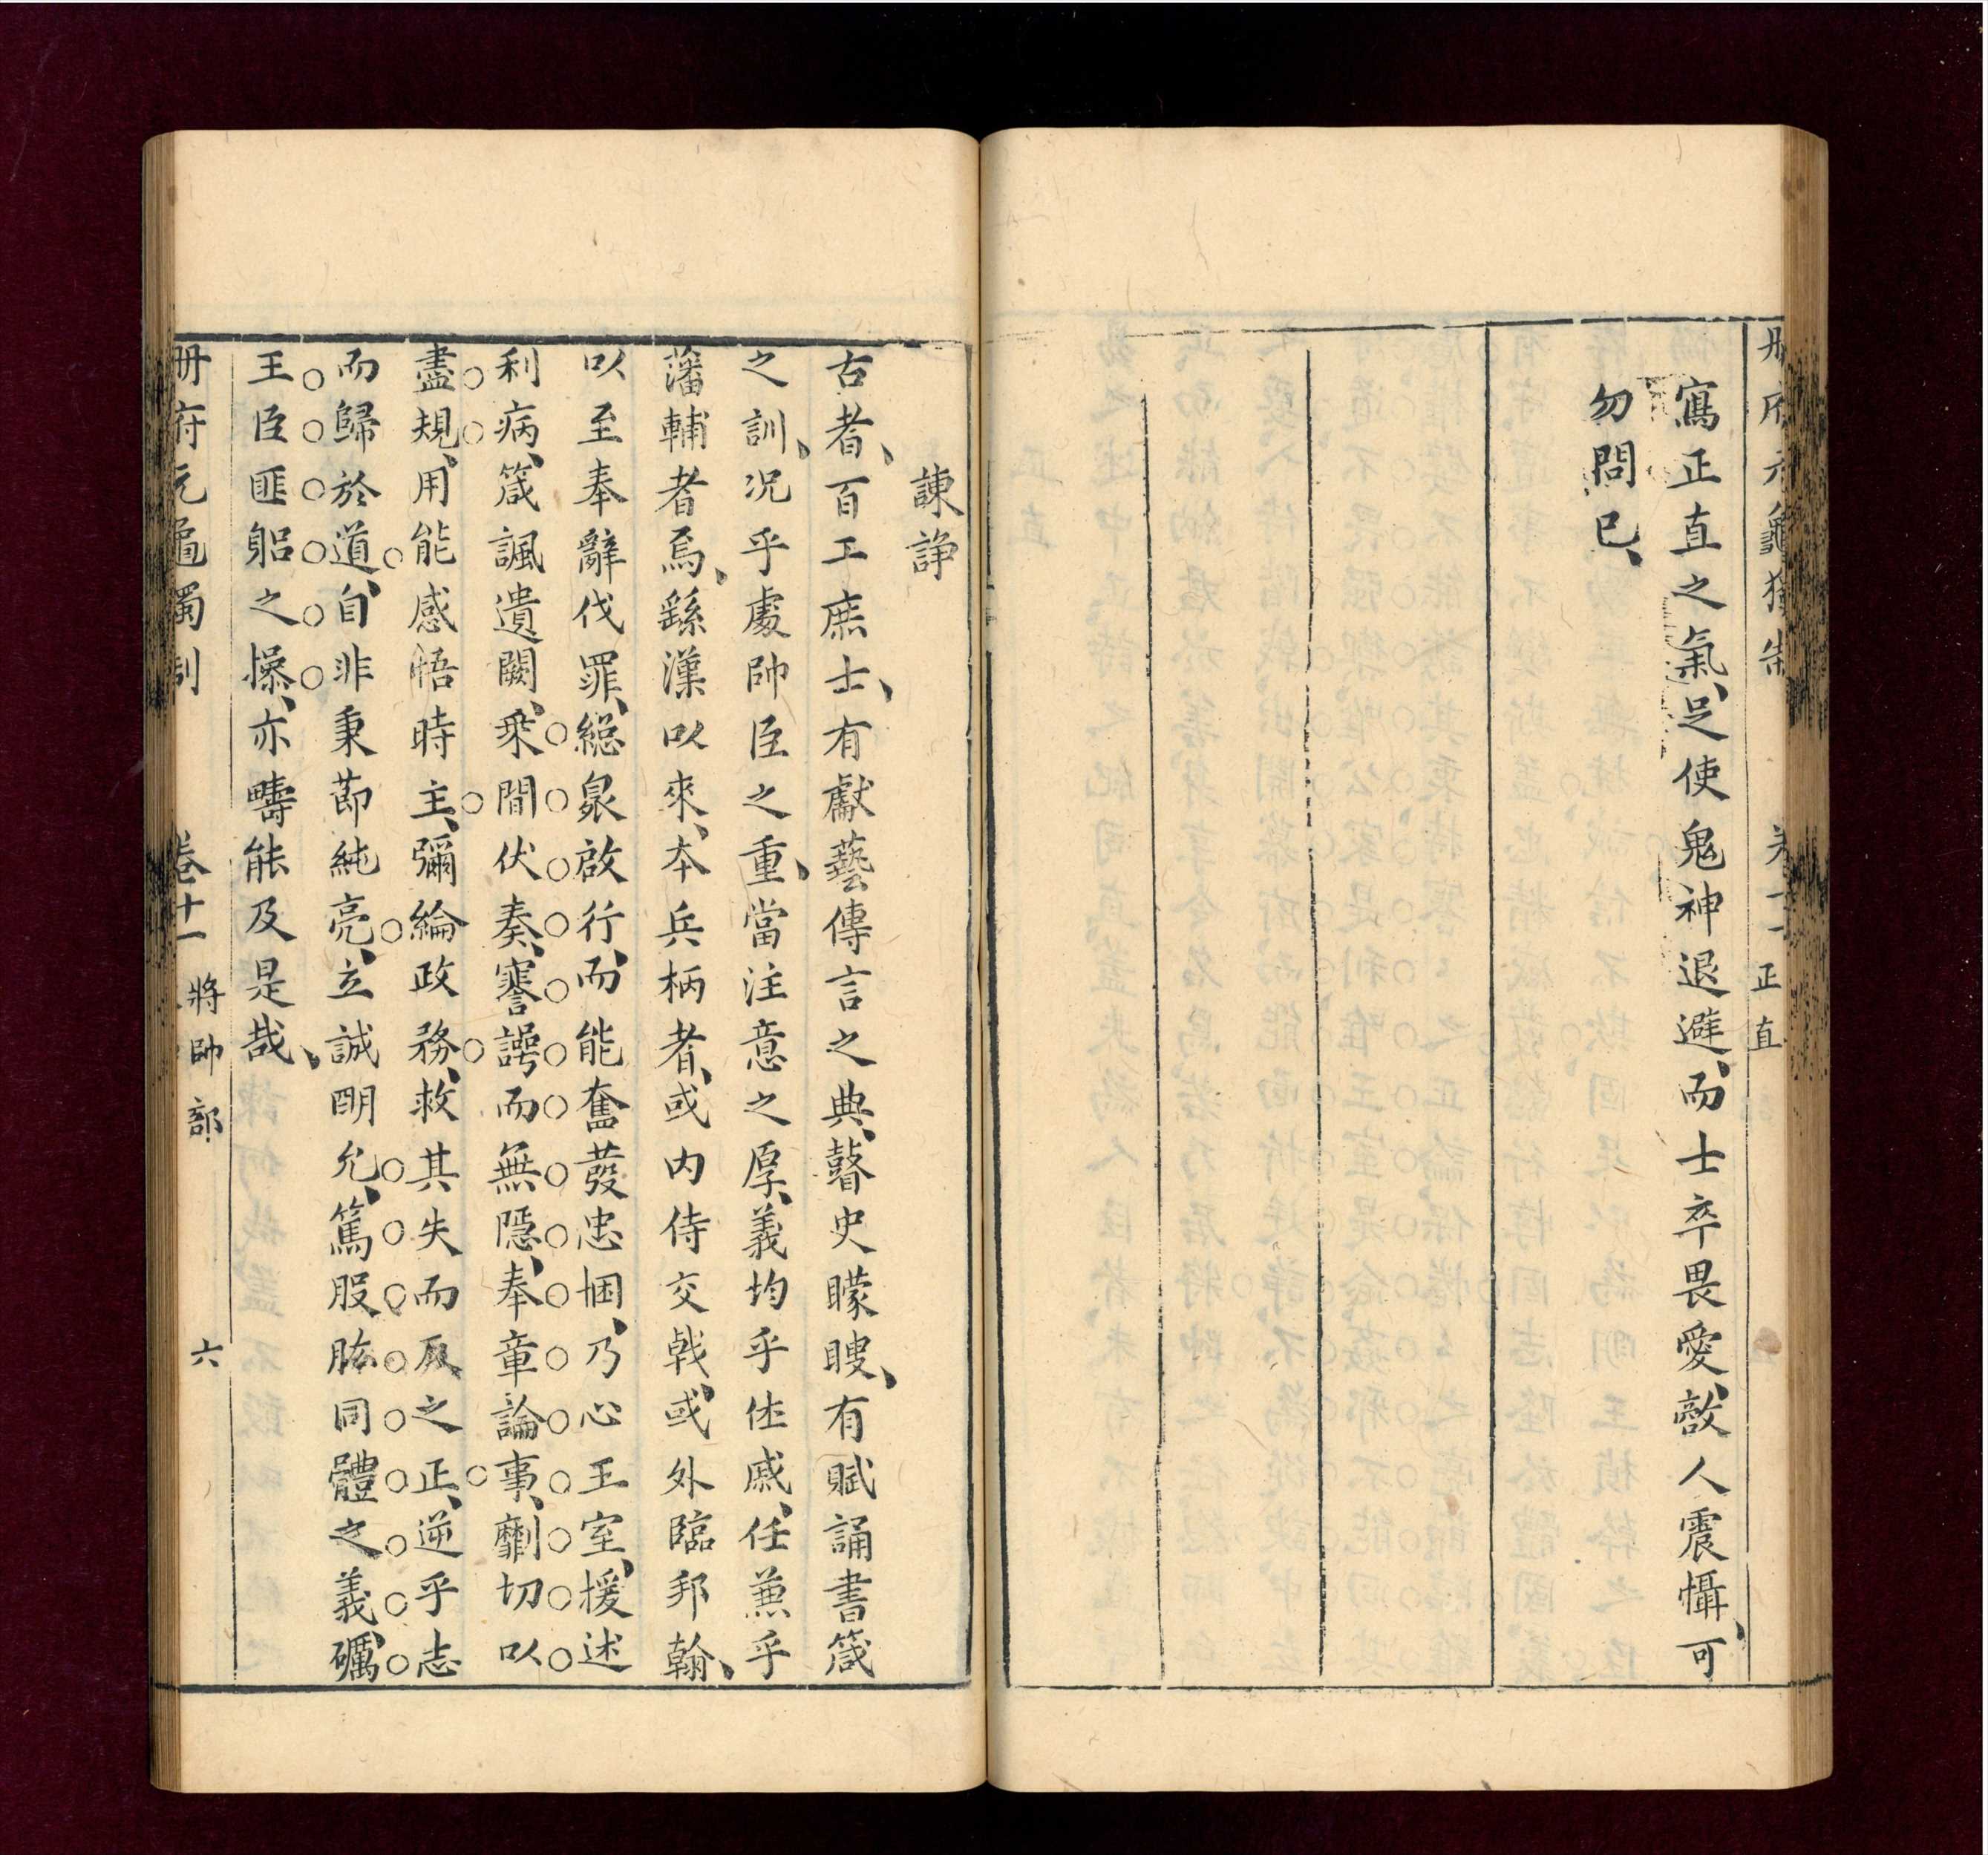 冊府元龜獨制 卷十一 正直
寫正直之氣、足使鬼神退避、而士卒畏愛、敵人震懾、可
勿問已、
諫諍
古者、百工庶士、有獻藝傳言之典、瞽史矇瞍、有賦誦書箴
之訓、况乎處帥臣之重、當注意之厚、義均乎休戚、任兼乎
藩輔者焉、繇漢以來、本兵柄者、或內侍交戟、或外臨邦翰、
以至奉辭伐罪、緫衆啟行、而能奮發忠悃、乃心王室、援述
利病、箴諷遺闕、乘間伏奏、謇諤而無隱、奉章論事、劘切以
盡規、用能感悟時主、彌綸政務、救其失而反之正、逆乎志
而歸於道、自非秉節純亮、立誠明允、篤股肱同體之義、礪
王臣匪躬之操、亦疇能及是哉、
冊府元龜獨制 卷十一 將帥部 六